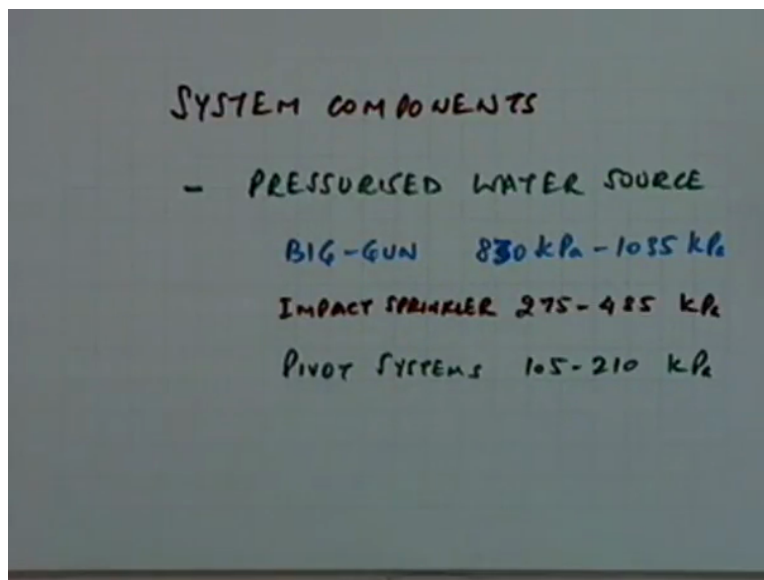 SYSTEM COMPONENTS
- PRESSURISED WATER SOURCE
BIG-GUN 830 kPa - 1035 kPa
IMPACT SPRINKLER 275-485 kPa
PIVOT SYSTEMS 105-210 kPa